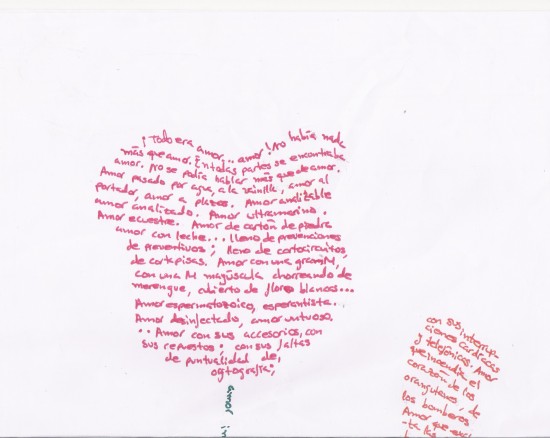 ¡Todo era amor... amor! No había nada
más que amor. En todas partes se encontraba
amor. No se podía hablar más que de amor.
Amor pasado por agua, a la vainilla, amor al
portador, amor a plazos. Amor analizable
amor analizado. Amor ultramarino.
Amor ecuestre. Amor de cartón de piedra
amor con leche... lleno de prevenciones
de preventivos; lleno de cortocircuitos
de cortapisas. Amor con una gran M,
con una M mayúscula chorreando de
merengue, cubierto de flores blancas...
Amor espermatozoico, esperantista.
Amor desinfectado, amor untuoso.
.. Amor con sus accesorios, con
sus repuestos; con sus faltas
de puntualidad de,
ogtografía;
amor in
con sus interrup
ciones cardíacas
y telefónicas. Amor
que incendia el
corazón de los
orangutanes, de
los bomberos
Amor que
-ta las